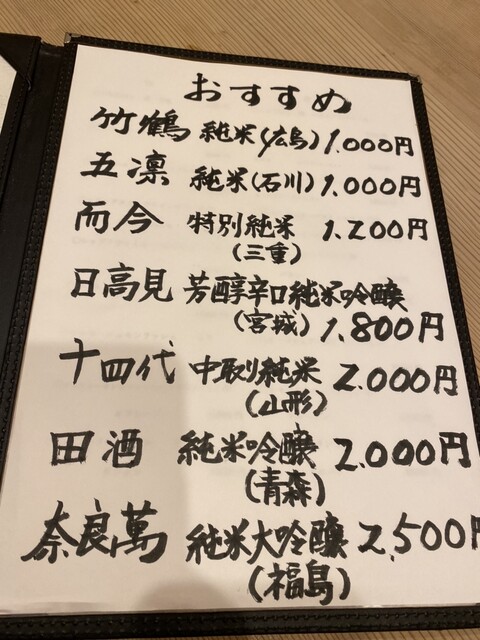 おすすめ
竹鶴 純米(広島) 1.000円
五凛 純米(石川) 1.000円
而今 特別純米 1.200円
(三重)
日高見 芳醇辛口純米吟醸
(宮城) 1.800円
十四代 中取り純米 2.000円
(山形)
田酒 純米吟醸 2.000円
(青森)
奈良萬 純米大吟醸 2,500円
(福島)